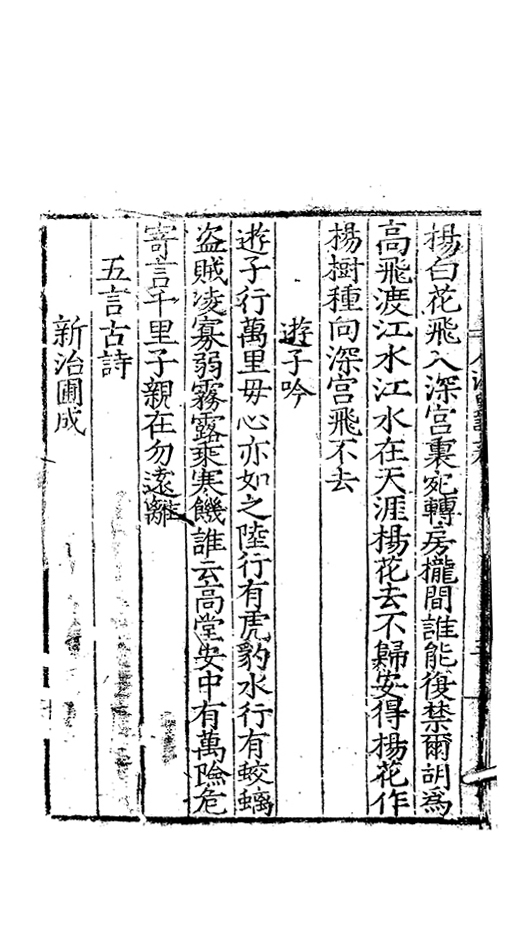 楊白花飛入深宮裏宛轉房櫳間誰能復禁爾胡為
高飛渡江水江水在天涯楊花去不歸安得楊花作
楊樹種向深宮飛不去
遊子吟
遊子行萬里毋心亦如之陸行有虎豹水行有蛟螭
盗賊凌寡弱霧露乘寒饑誰云高堂安中有萬險危
寄言千里子親在勿遠離
五言古詩
新治圃成